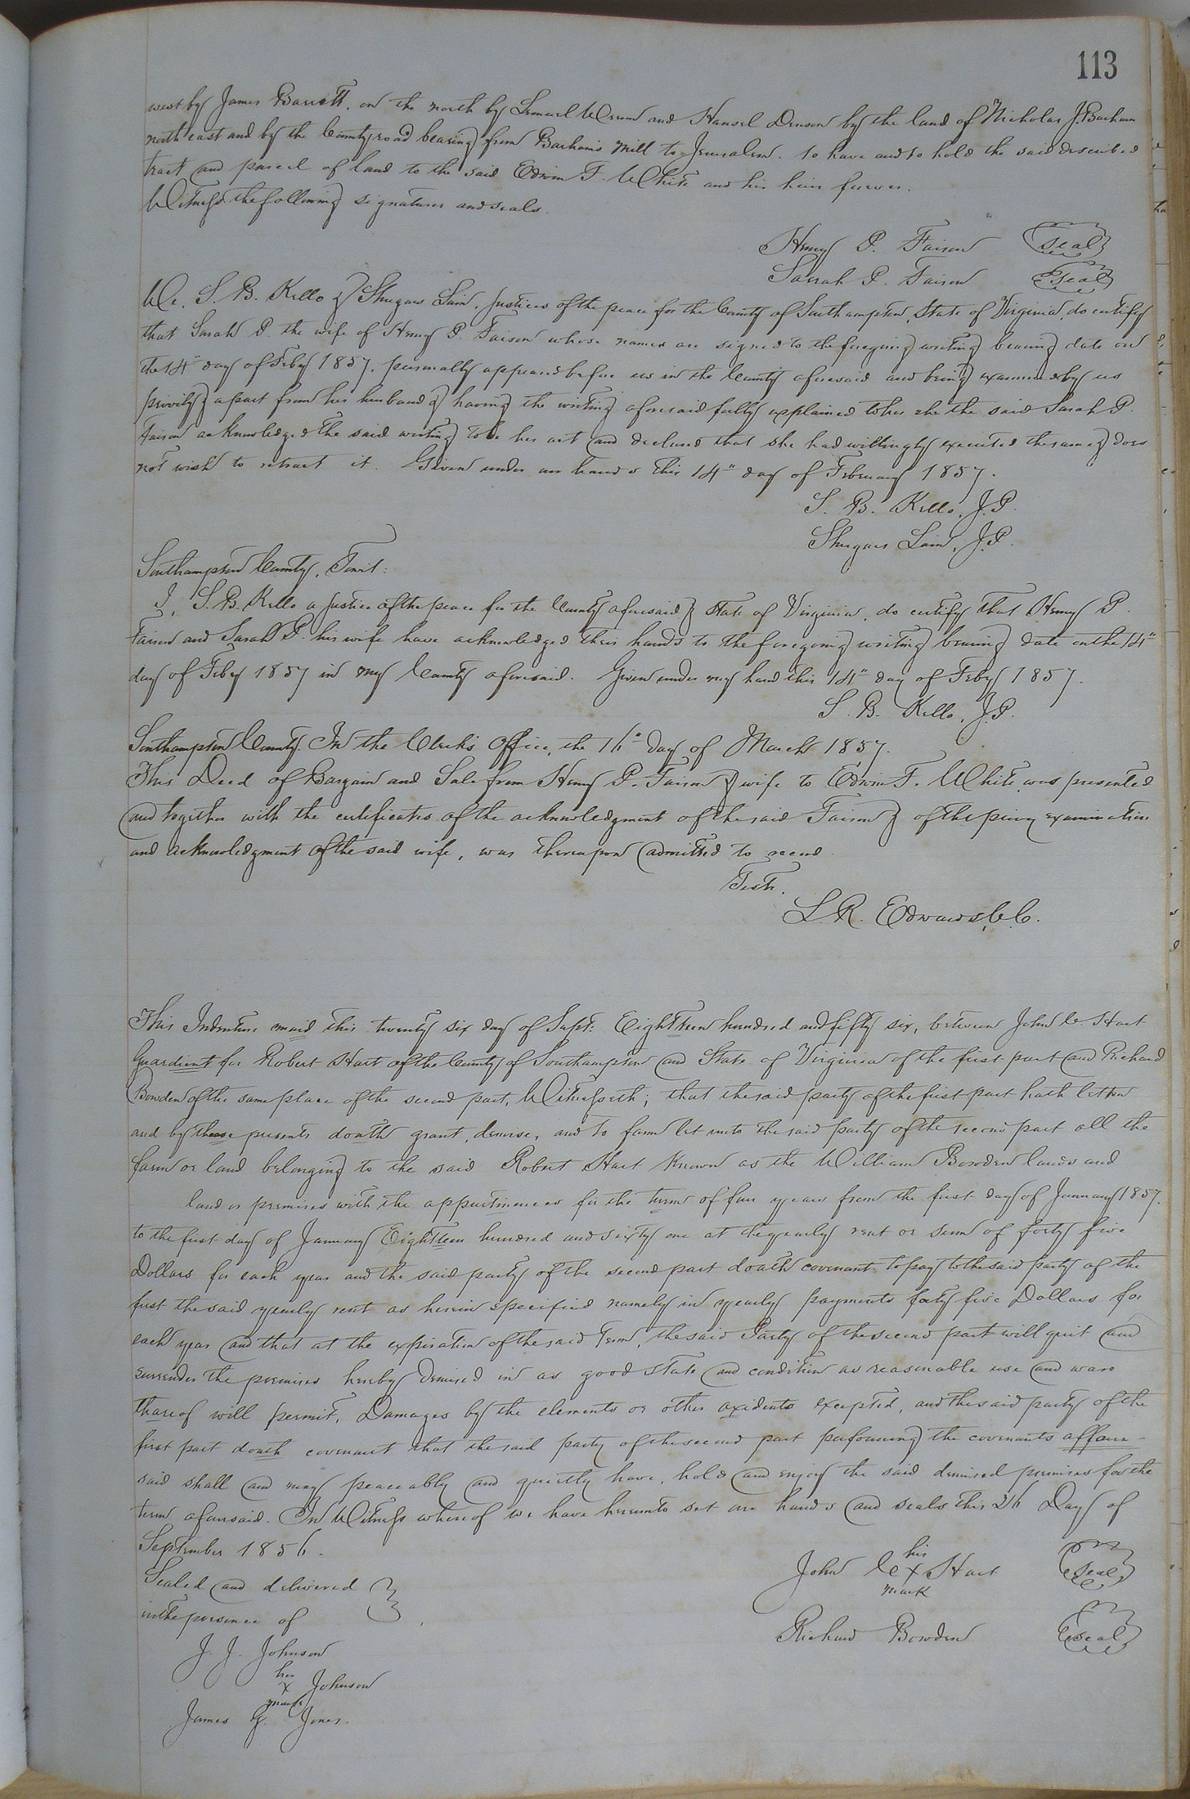 113
west by James Barrett, on the north by Lemuel and Hansel Denson by the land of Nicholas J. Barham
north east and by the County road bearing from Barham's Mill to Jerusalem. to have and to hold the said described
tract and parcel of land to the said Edwin F. White and his heirs forever.
Witness the following signatures and seals.
Henry P. Faison (Seal)
Sarah P. Faison (Seal)
We, S. B. Kello & Shugars Lain, Justices of the peace for the County of Southampton, State of Virginia, do certify
that Sarah P. the wife of Henry P. Faison whose names are signed to the foregoing writing bearing date on
the 14" day of Feby 1857, personally appeared before us in the County aforesaid and being examined by us
privily & apart from her husband & having the writing aforesaid fully explained to her she the said Sarah P.
Faison acknowledged the said writing to be her act and declared that she had willingly executed the same & does
not wish to retract it. Given under our hands this 14" day of February 1857.
S. B. Kello, J.P.
Shugars Lain, J.P.
Southampton County, Towit:
I, S. B. Kello a Justice of the peace for the County aforesaid & State of Virginia, do certify that Henry P.
Faison and Sarah P. his wife have acknowledged their hands to the foregoing writing bearing date on the 14"
day of Feby 1857 in my County aforesaid. Given under my hand this 14" day of Feby 1857.
S. B. Kello, J.P.
Southampton County. In the Clerk's Office, the 16" day of March 1857.
This Deed of Bargain and Sale from Henry P. Faison & wife to Edwin F. White was presented
and together with the certificates of the acknowledgment of the said Faison & of the privy examination
and acknowledgment of the said wife, was thereupon admitted to record
Teste.
L. R. Edwards, C.C.
This Indenture maid this twenty six day of Sept: Eighteen hundred and fifty six, between John C. Hart
Guardient for Robert Hart of the County of Southampton and State of Virginia of the first part and Richard
Bowden of the same place of the second part, Witnesseth; that the said party of the first part hath letten
and by these presents doath grant, demise, and to farm let unto the said party of the second part all the
farm or land belonging to the said Robert Hart known as the William Bowden lands and
land or premises with the appurtinences for the term of four years from the first day of January 1857.
to the first day of January Eighteen hundred and sixty one at the yearly rent or sum of forty five
Dollars for each year and the said party of the second part doath covenant to pay to the said party of the
first the said yearly rent as herein specified namely in yearly payments forty five Dollars for
each year and that at the expiration of the said Term, the said Party of the second part will quit and
surrender the premises hereby demised in as good state and condition as reasonable use and ware
thareof will permit, Damages by the elements or other axidents excepted, and the said party of the
first part doath covenant that the said party of the second part performing the covenants affore-
said shall and may peaceably and quietly have, hold and enjoy the said demised premises for the
term aforesaid. In Witness whereof we have hereunto set our hands and seals this 26 Day of
September 1856.
Sealed and delivered
in the presence of
John C his X mark Hart (Seal)
Richard Bowden (Seal)
J. J. Johnson
his X mark Johnson
James G. Jones.